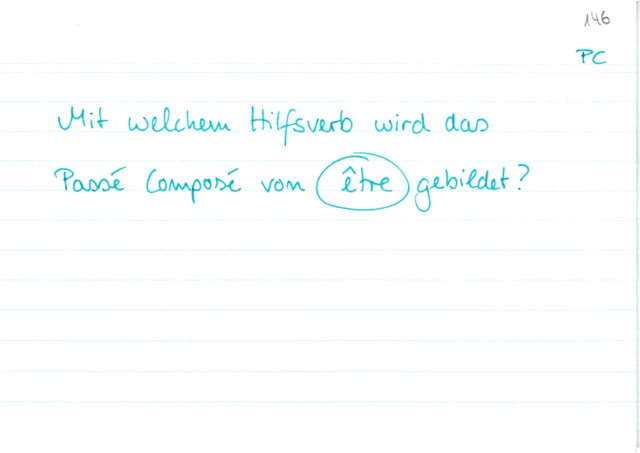 146
PC
Mit welchem Hilfsverb wird das
Passé Composé von être gebildet?